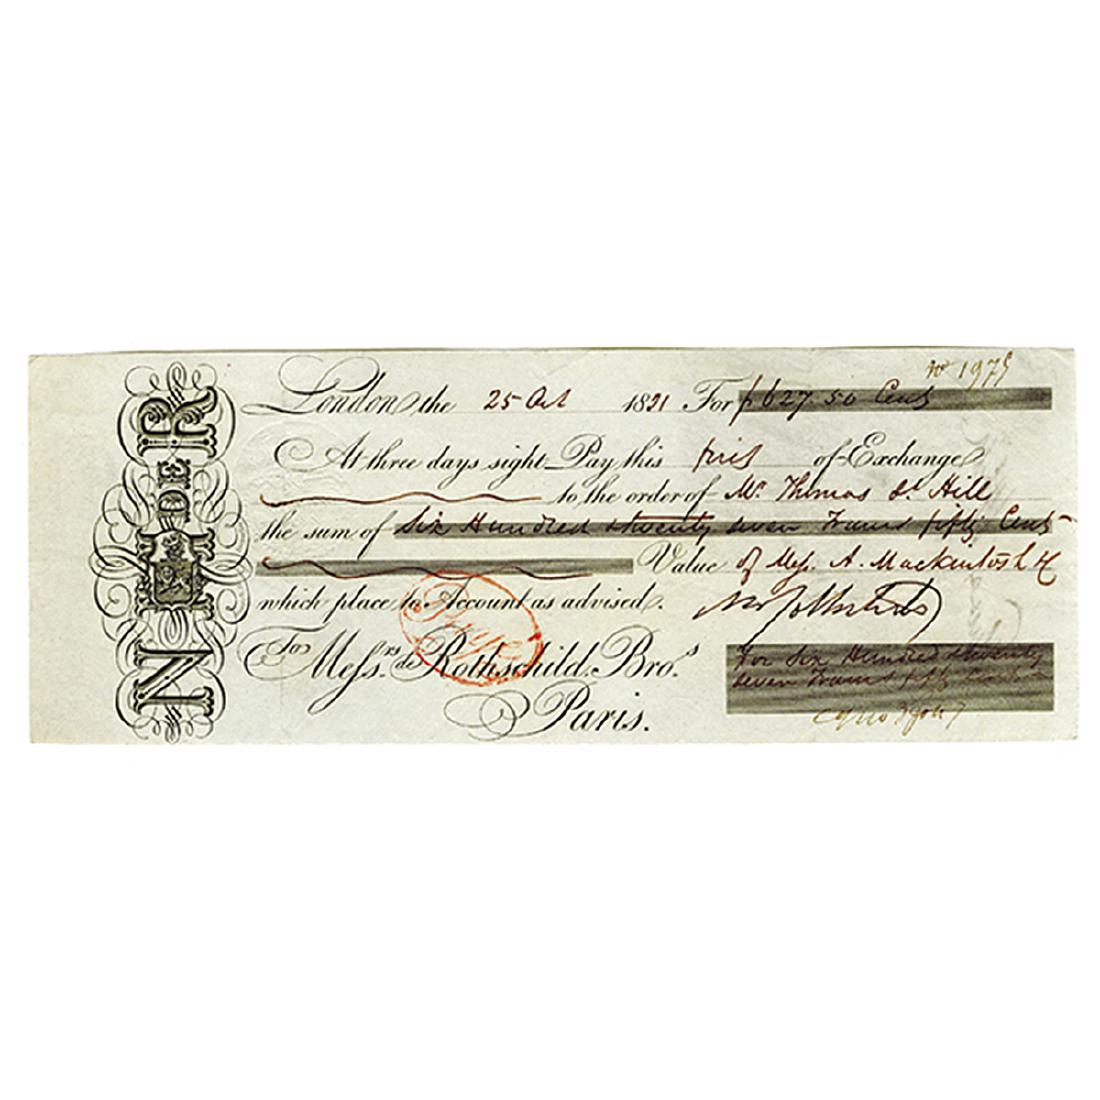 N DE R
No 1975
London, the 25 Oct 1831 For f 627 50 Cents
At three days sight Pay this first of Exchange
to the order of Mr. Thomas Hill
the sum of Six Hundred & twenty seven Francs fifty Cents
Value of Mess. A. Mackintosh & Co
which place to Account as advised.
To Messrs. de Rothschild Bros.
Paris.
For Six Hundred & twenty
seven Francs fifty Cents